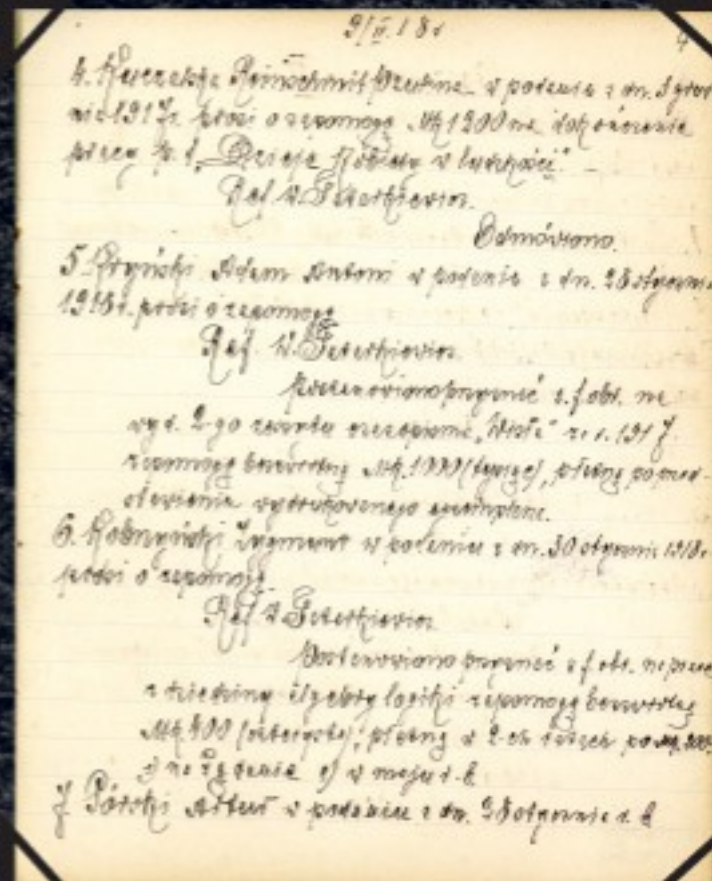 9/II.18 r
4
4. Reinschmit w podaniu z dn. 3 grud
nia 1917 r. prosi o zapomogę Mk 1200 na dokończenie
pracy p. t. „Dzieje kobiety w ludzkości". –
Ref. W. Peterkiewicz.
Odmówiono.
5. Kryński Adam Antoni w podaniu z dn. 28 stycznia
1918 r. prosi o zapomogę
Ref. W. Peterkiewicz
Postanowiono przyznać z f. obr. na
wyd. 2-go czasopisma „Wisła" za r. 1917.
zapomogę bezzwrotną Mk. 1000 (tysiąc), płatną po przed-
stawieniu wydrukowanego egzemplarza.
6. Zygmunt w podaniu z dn. 30 stycznia 1918 r.
prosi o zapomogę
Ref. W. Peterkiewicz
Postanowiono przyznać z f. obr. na prace
z dziedziny algebry logiki zapomogę bezzwrotną
Mk 400 (czterysta), płatną w 2-ch ratach po Mk. 200
na żądanie w maju r. b
7. Górski Artur w podaniu z dn. 28 stycznia r. b